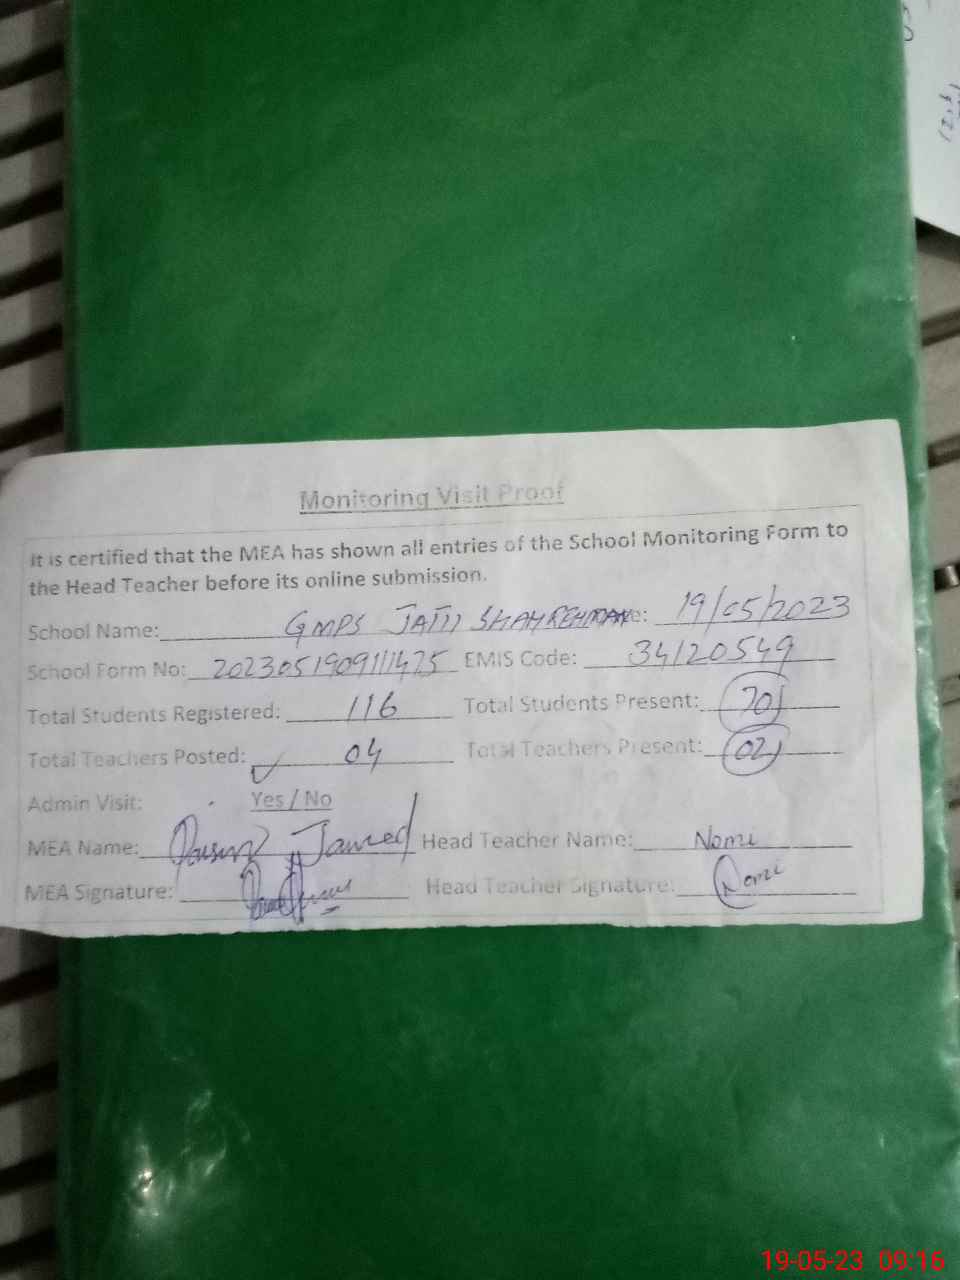 Monitoring Visit Proof
It is certified that the MEA has shown all entries of the School Monitoring Form to
the Head Teacher before its online submission.
School Name: GMPS JATTI SHAHREHMAN e: 19/05/2023
School Form No: EMIS Code: 34120549
Total Students Registered: 116 Total Students Present: 70
Total Teachers Posted: 04 Total Teachers Present: 02
Admin Visit: Yes / No
MEA Name: Javed Head Teacher Name: Nomi
MEA Signature: Head Teacher Signature: Nomi
19-05-23 09:16